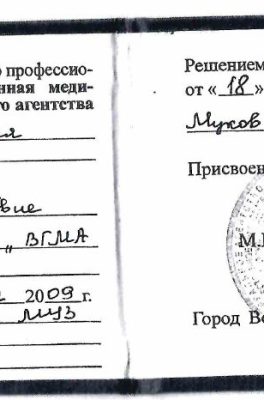 о профессио-
нная меди-
го агентства
ия
вие
„ ВГМА
2009 г.
МУЗ
Решением
от « 18 »
Мухов
Присвоен
М.
Город Во